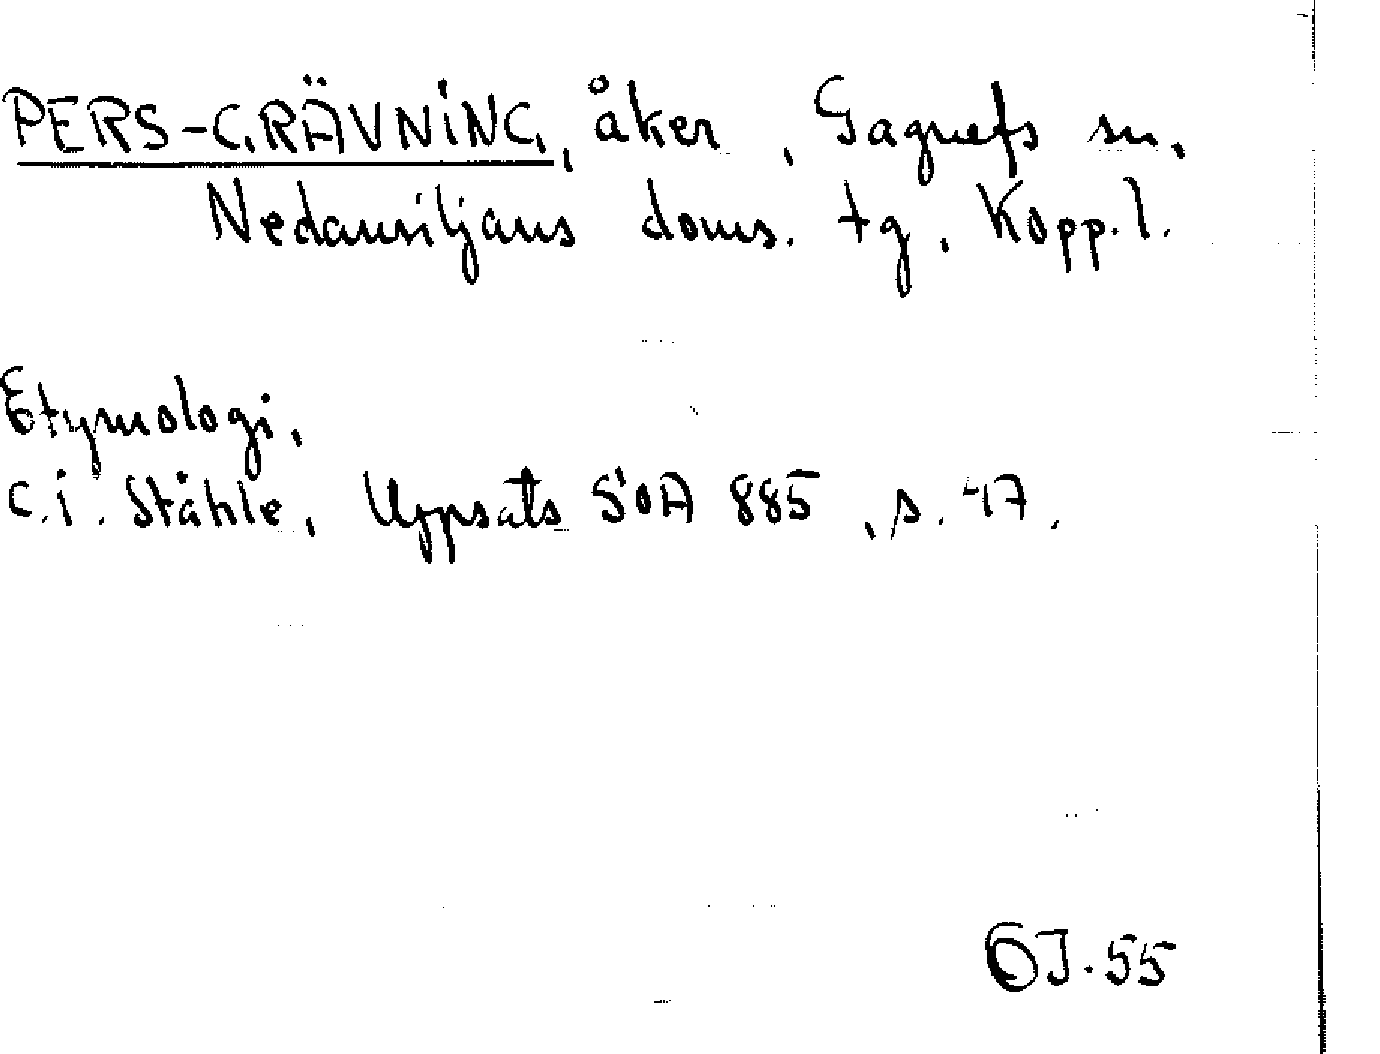 PERS-GRÄVNING, åker, Gagnefs sn,
Nedansiljans doms. tg, Kopp.l.
Etymologi,
C.I. Ståhle, Uppsats SOA 885, s. 47.
ÖJ.55